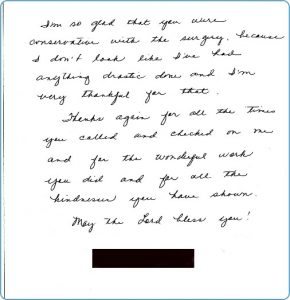 I'm so glad that you were
conservative with the surgery, because
I don't look like I've had
anything drastic done and I'm
very thankful for that.
Thanks again for all the times
you called and checked on me
and for the wonderful work
you did and for all the
kindnesses you have shown.
May the Lord bless you!